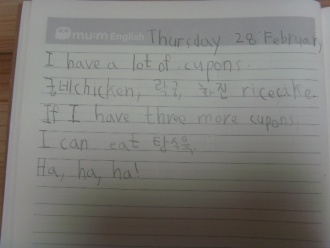 mum English Thursday 28 February
I have a lot of cupons.
굽네chicken, 피자, ricecake
If I have three more cupons,
I can eat 탕수육.
Ha, ha, ha!